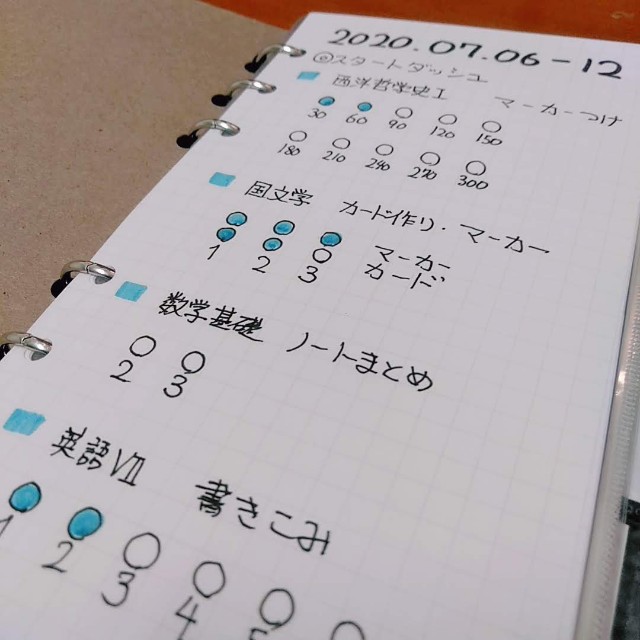 2020.07.06-12
◎スタートダッシュ
西洋哲学史I マーカーつけ
30 60 90 120 150
180 210 240 270 300
国文学 カード作り・マーカー
マーカー
1 2 3 カード
数学基礎 ノートまとめ
2 3
英語VII 書きこみ
1 2 3 4